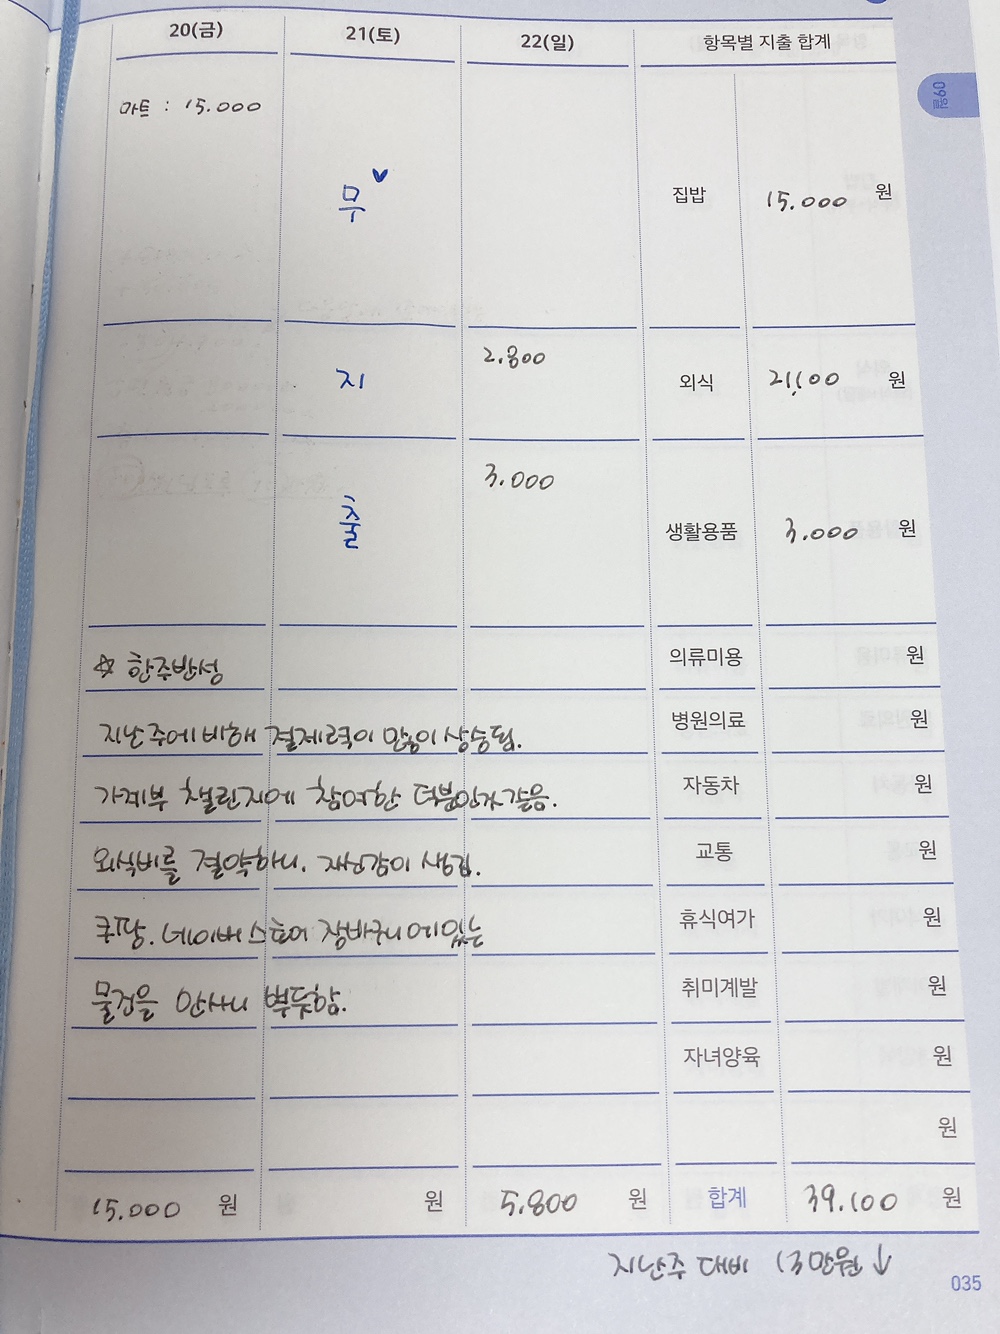 20(금) 21(토) 22(일) 항목별 지출 합계
09월
마트 : 15.000
무 집밥 15.000 원
2.800
지 외식 21,100 원
3.000
출 생활용품 3.000 원
☆ 한주반성 의류미용 원
지난주에 비해 절제력이 많이 상승됨. 병원의료 원
가계부 챌린지에 참여한 덕분인거 같음. 자동차 원
외식비를 절약하니. 자신감이 생김. 교통 원
쿠팡. 네이버 스토어 장바구니에 있는 휴식여가 원
물건을 안사니 뿌듯함. 취미계발 원
자녀양육 원
원
15.000 원 원 5.800 원 합계 39.100 원
지난주 대비 13만원 ↑
035